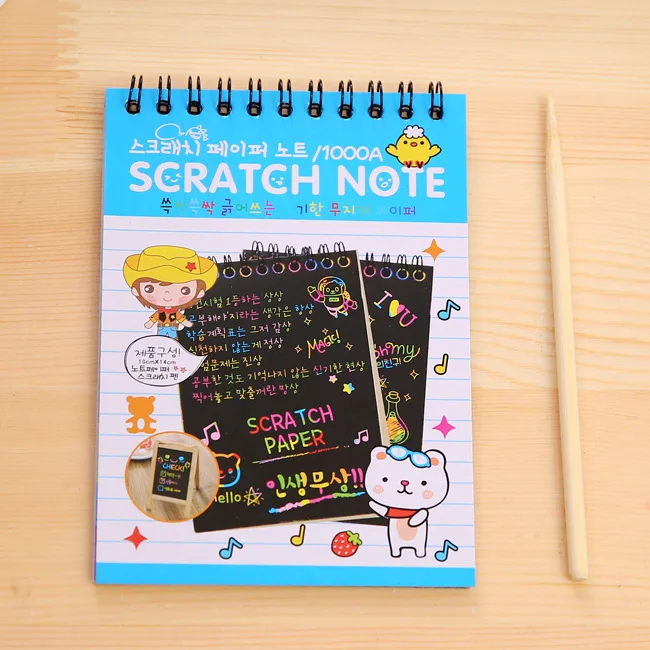 스크래치 페이퍼 노트 /1000A
SCRATCH NOTE
쓱 쓱싹 긁어쓰는 기한 무지 이퍼
시험 1등하는 상상
공부해야지라는 생각은 항상
학습계획표는 그저 감상
실천하지 않는게 정상
시험문제는 진상
공부한 것도 기억나지 않는 신기한 현상
찍어놓고 맞출꺼란 망상
Magic!
I U
oh my
SCRATCH
PAPER
Hello
인생무상!!
제품구성!
10cmX14cm
노트페이퍼
스크래치 펜
CHECK!